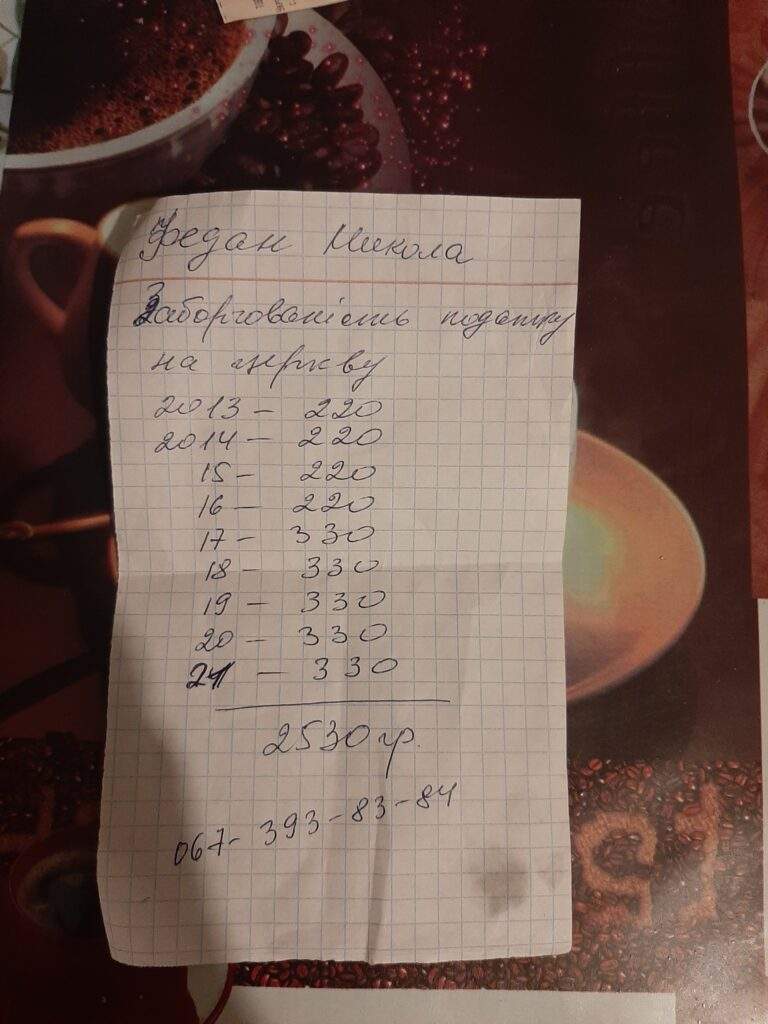 Федан Микола
Заборгованість податку
на церкву
2013 - 220
2014 - 220
15 - 220
16 - 220
17 - 330
18 - 330
19 - 330
20 - 330
21 - 330
2530 гр.
067-393-83-84